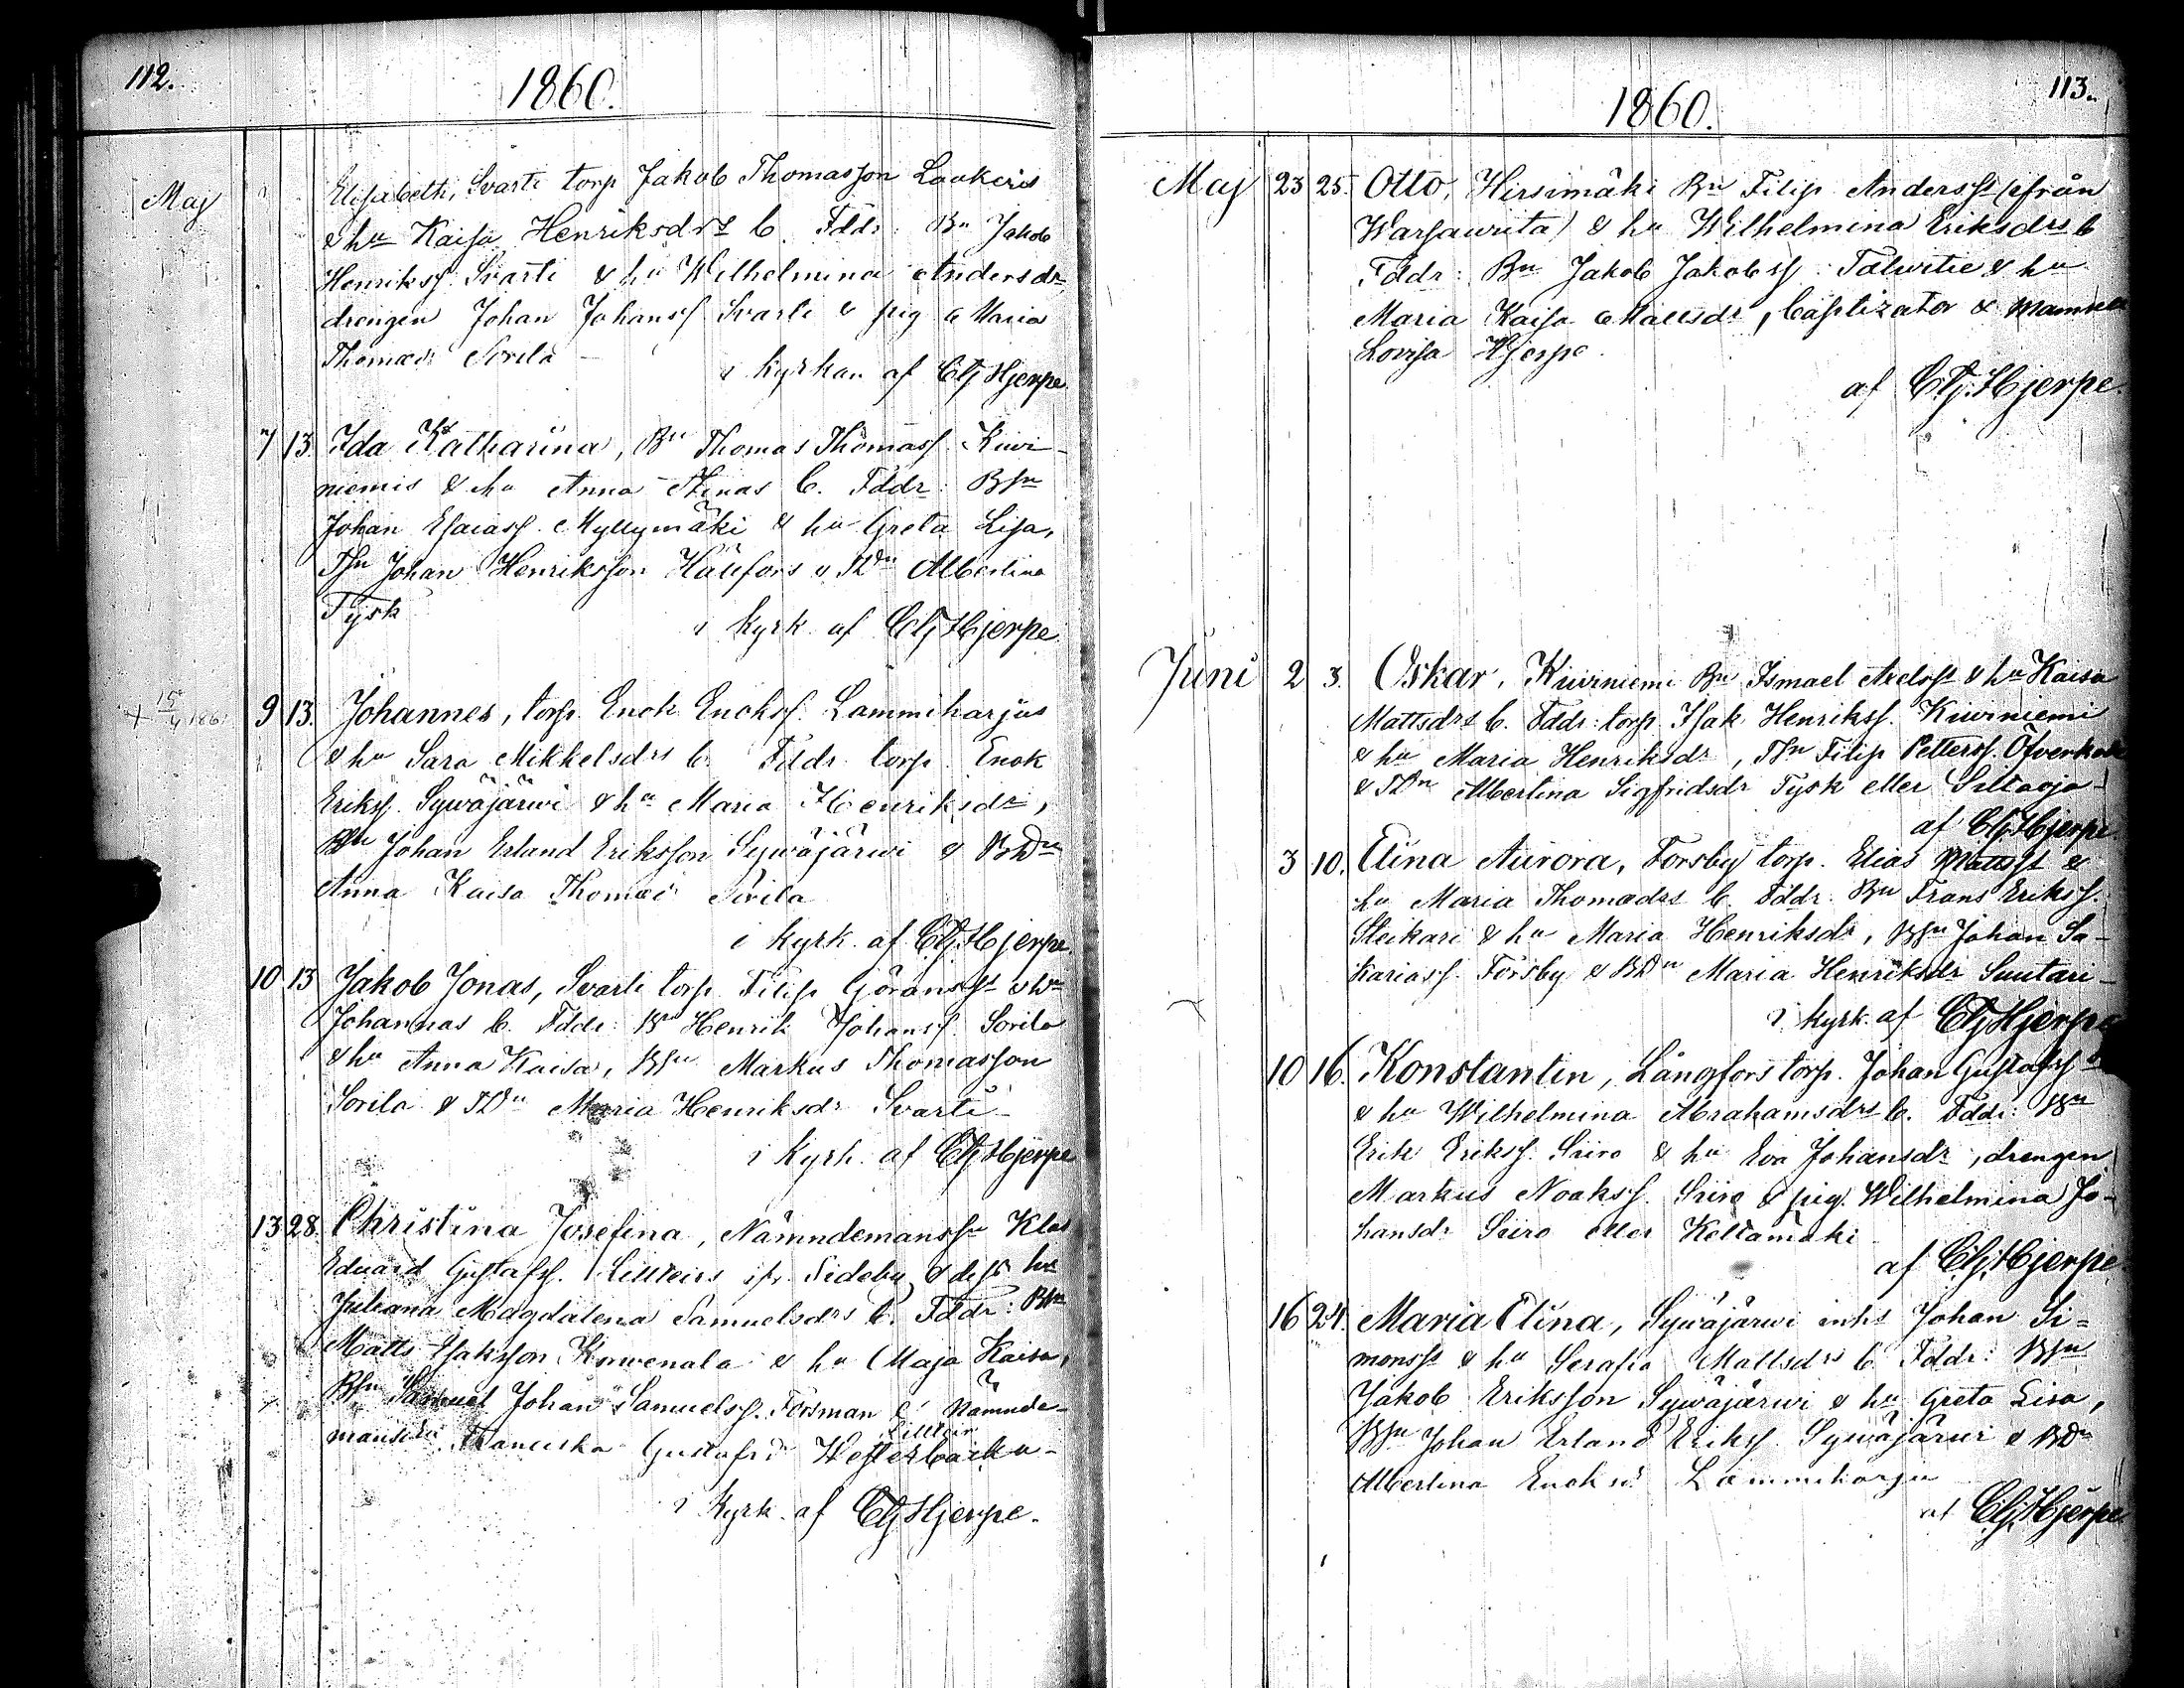 112.
1860.
Maj
Elisabeth, Svarti torp Jakob Thomasson Laukeris
& hu Kaisa Henriksdrs b. Fddr: Bn Jakob
Henrikss. Svarti & hu Wilhelmina Andersdr,
drengen Johan Johanss Svarti & pig Maria
Thomædr Sorila
i kyrkan af CGHjerpe
7 13. Ida Katharina, Bn Thomas Thomass. Kivi-
niemis & hu Anna Stinas b. Fddr: Bsn
Johan Esaiass. Myllymäki & hu Greta Lisa,
Tsn Johan Henriksson Hällfors & TDn Albertina
Tysk
i kyrk af CGHjerpe
+ 15/4 1861 9 13. Johannes, torp. Enok Enokss. Lammiharjus
& hu Sara Mikkelsdrs b. Fddr torp. Enok
Erikss. Sywäjärwi & hu Maria Henriksdr,
Bsn Johan Erland Eriksson Sywäjärwi & BDn
Anna Kaisa Thomædr Sorila
i kyrk. af CGHjerpe.
10 13 Jakob Jonas, Svarti torp. Filip Göransss & hu
Johannas b. Fddr: Bn Henrik Johanss. Sorila
& hu Anna Kaisa, Bsn Markus Thomasson
Sorila & TDn Maria Henriksdr Svarti
i kyrk. af CGHjerpe
13 28. Christina Josefina, Nämndemanssn Klas
Eduard Gustafss. Lillteirs ifr. Sideby & dess hu
Juliana Magdalena Samuelsdrs b. Fddr: Bn
Matts Isaksson Korwenala & hu Maja Kaisa,
Bsn Samuel Johan Samuelss. Forsman & Nämnde-
Lillteir
mansdr Franciska Gustafsdr Westerbacka
i kyrk. af CGHjerpe.
113.
1860.
Maj 23 25. Otto, Hirsimäki Bn Filip Andersss (ifrån
Warsawrita) & hu Wilhelmina Eriksdrs b
Fddr: Bn Jakob Jakobss. Talwitie & hu
Maria Kaisa Mattsdr, baptizator & mamsell
Lovisa Hjerpe.
af CGHjerpe.
Juni 2 3. Oskar, Kiviniemi Bn Ismael Axelsss & hu Kaisa
Mattsdrs b. Fddr: torp. Isak Henrikss. Kiviniemi
& hu Maria Henriksdr, Tsn Filip Petterss. Öfverkak
& TDn Albertina Sigfridsdr Tysk eller Siltaoja
af CGHjerpe.
3 10. Elina Aurora, Forsby torp. Elias Mattsss &
hu Maria Thomædrs b. Fddr: Bn Frans Erikss.
Steikari & hu Maria Henriksdr, Bsn Johan Sa-
kariass. Forsby & BDn Maria Henriksdr Suutari
i kyrk. af CGHjerpe
10 16. Konstantin, Långfors torp. Johan Gustafsss
& hu Wilhelmina Abrahamsdrs b. Fddr: Bn
Erik Erikss. Siiro & hu Eva Johansdr, drengen
Markus Noakss. Siiro & pig. Wilhelmina Jo-
hansdr Siiro eller Keltamäki
af CGHjerpe
16 24. Maria Elina, Sywäjärwi inhs Johan Si=
monsss & hu Serafia Mattsdrs b. Fddr: Bsn
Jakob Eriksson Sywäjärwi & hu Greta Lisa,
Bsn Johan Erland Erikss. Sywäjärwi & BDn
Albertina Enoksd Lammiharju
af CGHjerpe